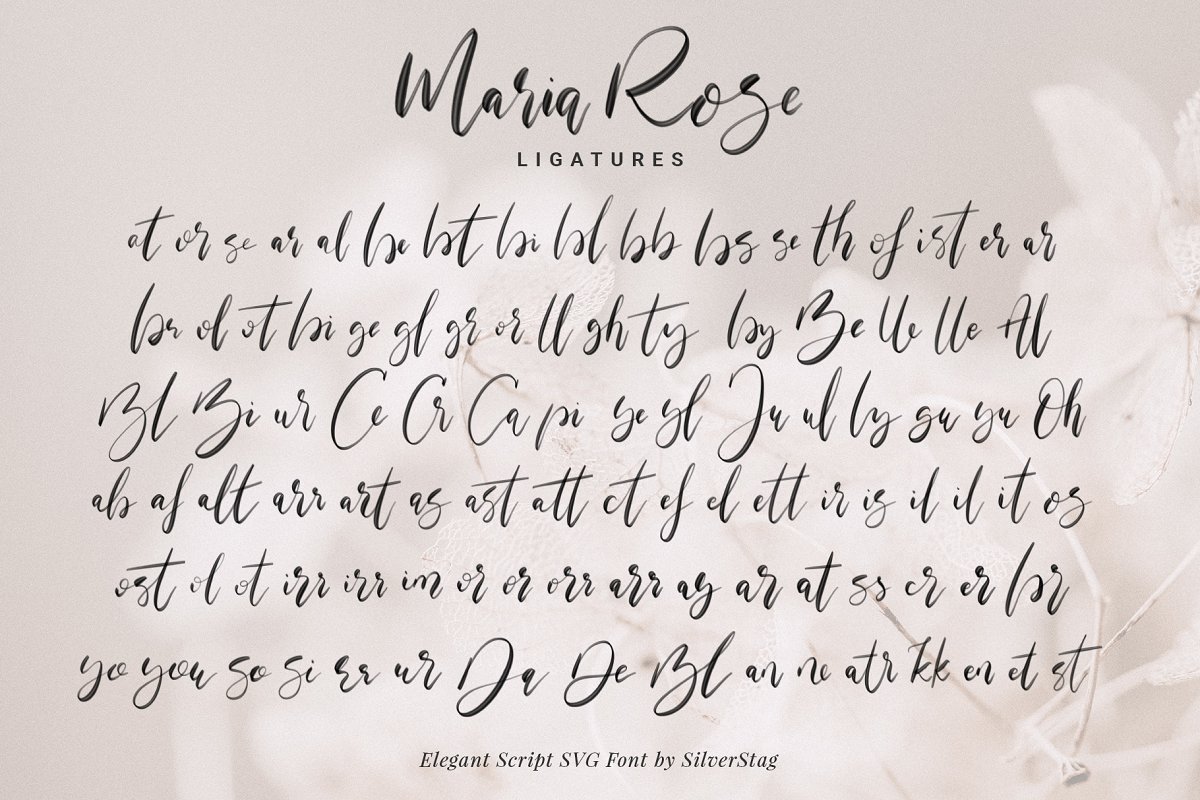 Maria Rose
LIGATURES
at or se ar al be bt bi bl bb bs se th of ist er ar
br ol ot bi ge gl gr or ll gh ty by Be lle lle Al
Bl Bi ur Ce Cr Ca pi ye yl Ju ul ly gu yu Oh
ab af alt arr art as ast att ct ef el ett ir is il il it os
ost ol ot irr irr im or or orr arr ay ar at ss er er br
yo you so si rr ur Da De Bl an ne atr kk en et st
Elegant Script SVG Font by SilverStag